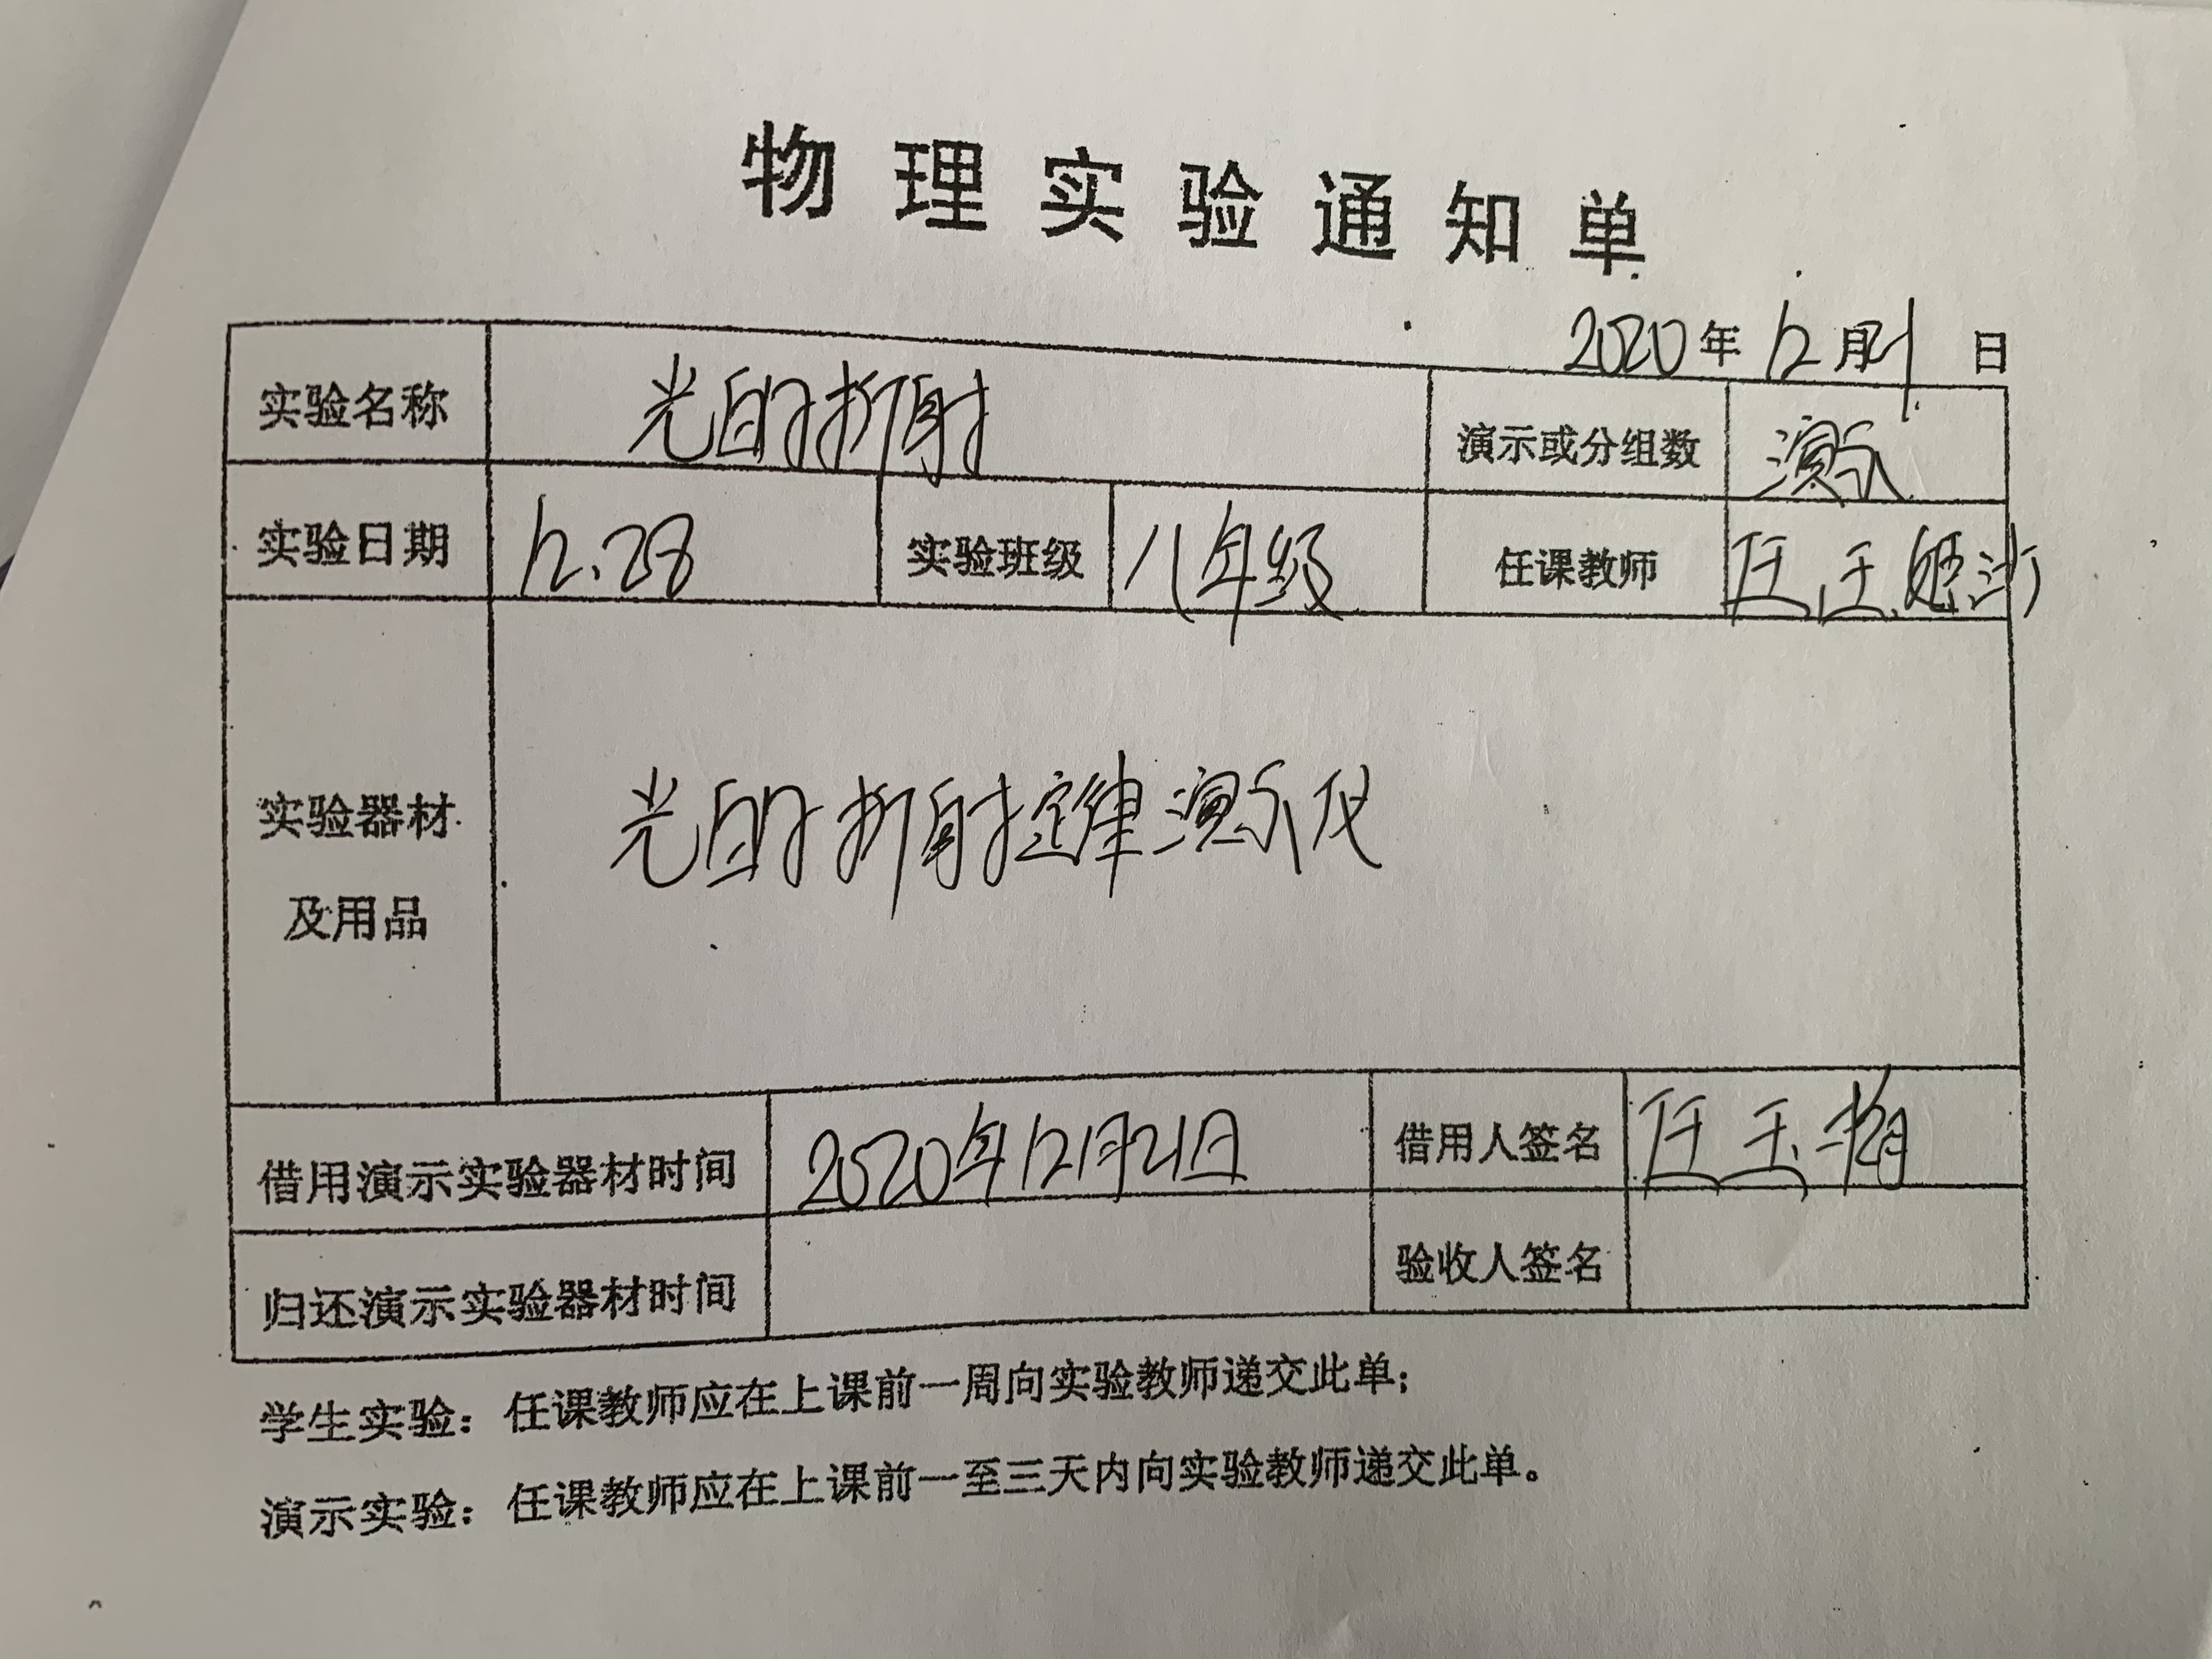 物理实验通知单
2020年12月21日
实验名称 光的折射 演示或分组数 演示
实验日期 12.28 实验班级 八年级 任课教师
实验器材
及用品
光的折射定律演示仪
借用演示实验器材时间 2020年12月21日 借用人签名 任玉梅
归还演示实验器材时间 验收人签名
学生实验：任课教师应在上课前一周向实验教师递交此单；
演示实验：任课教师应在上课前一至三天内向实验教师递交此单。